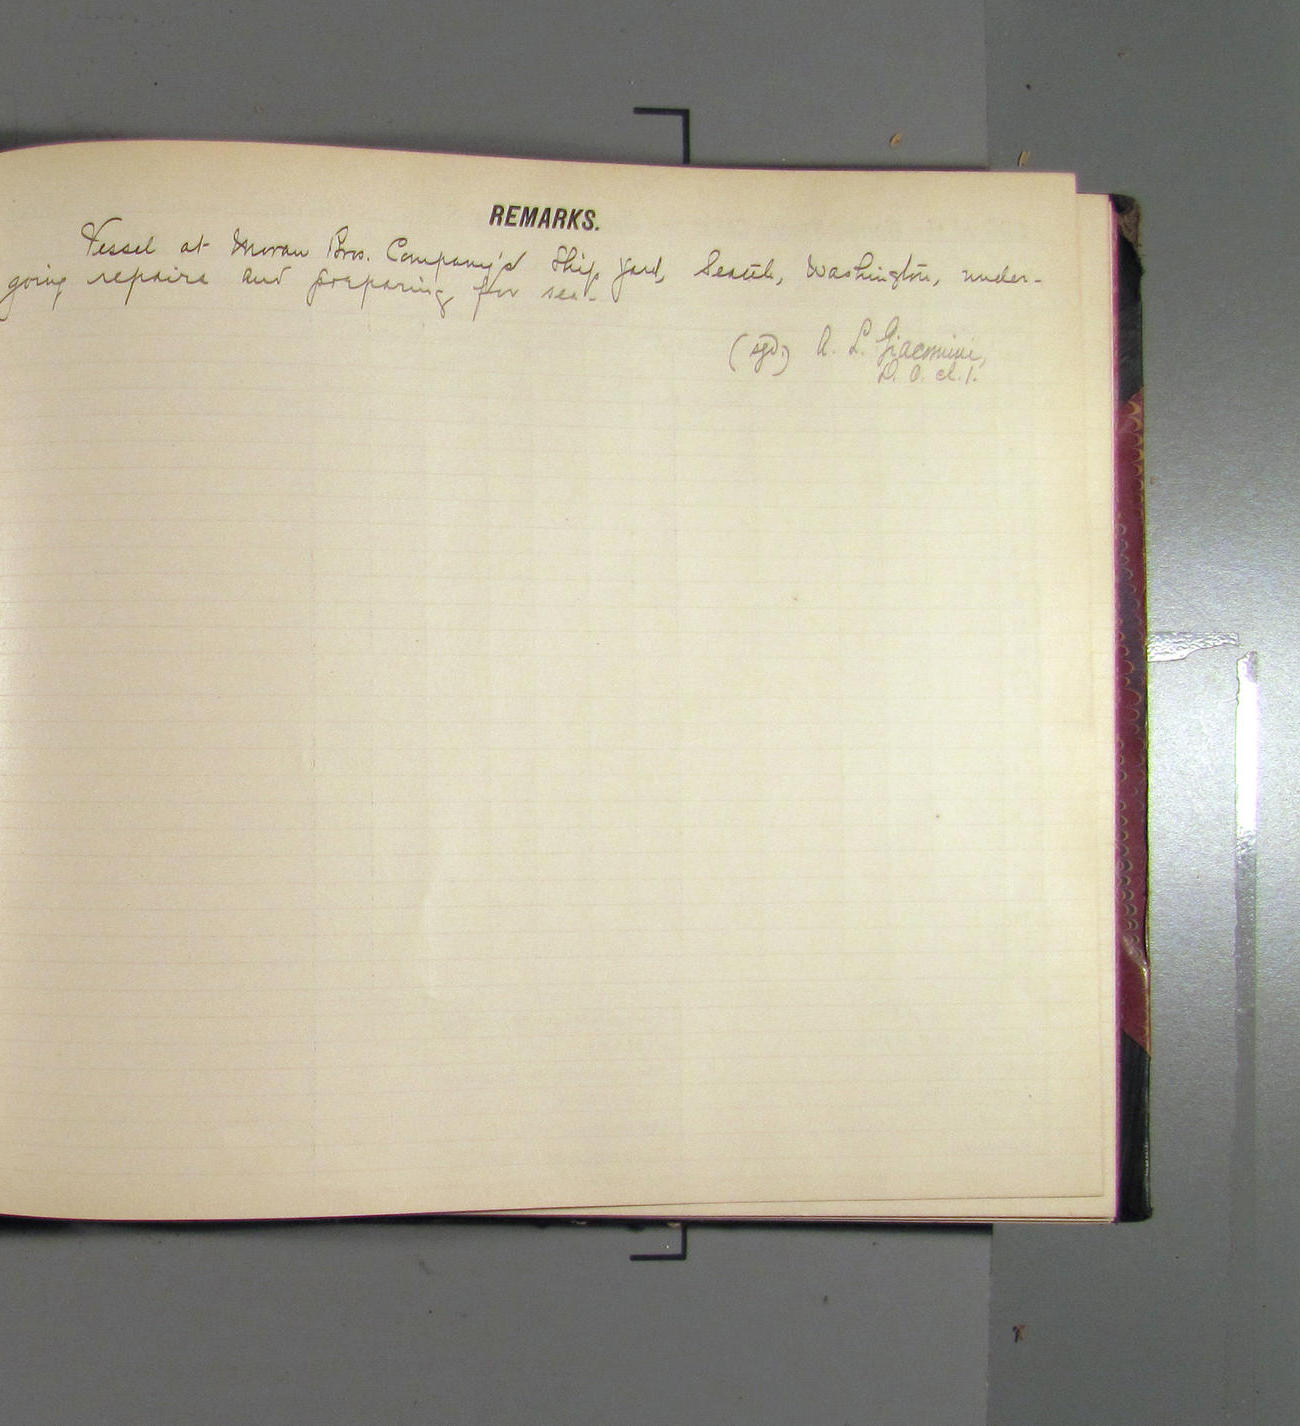 REMARKS.
Vessel at Moran Bros. Company's Ship Yard, Seattle, Washington, under-
going repairs and preparing for sea-
(sgd.) A. L. Giacomini,
D. O. cl. 1.